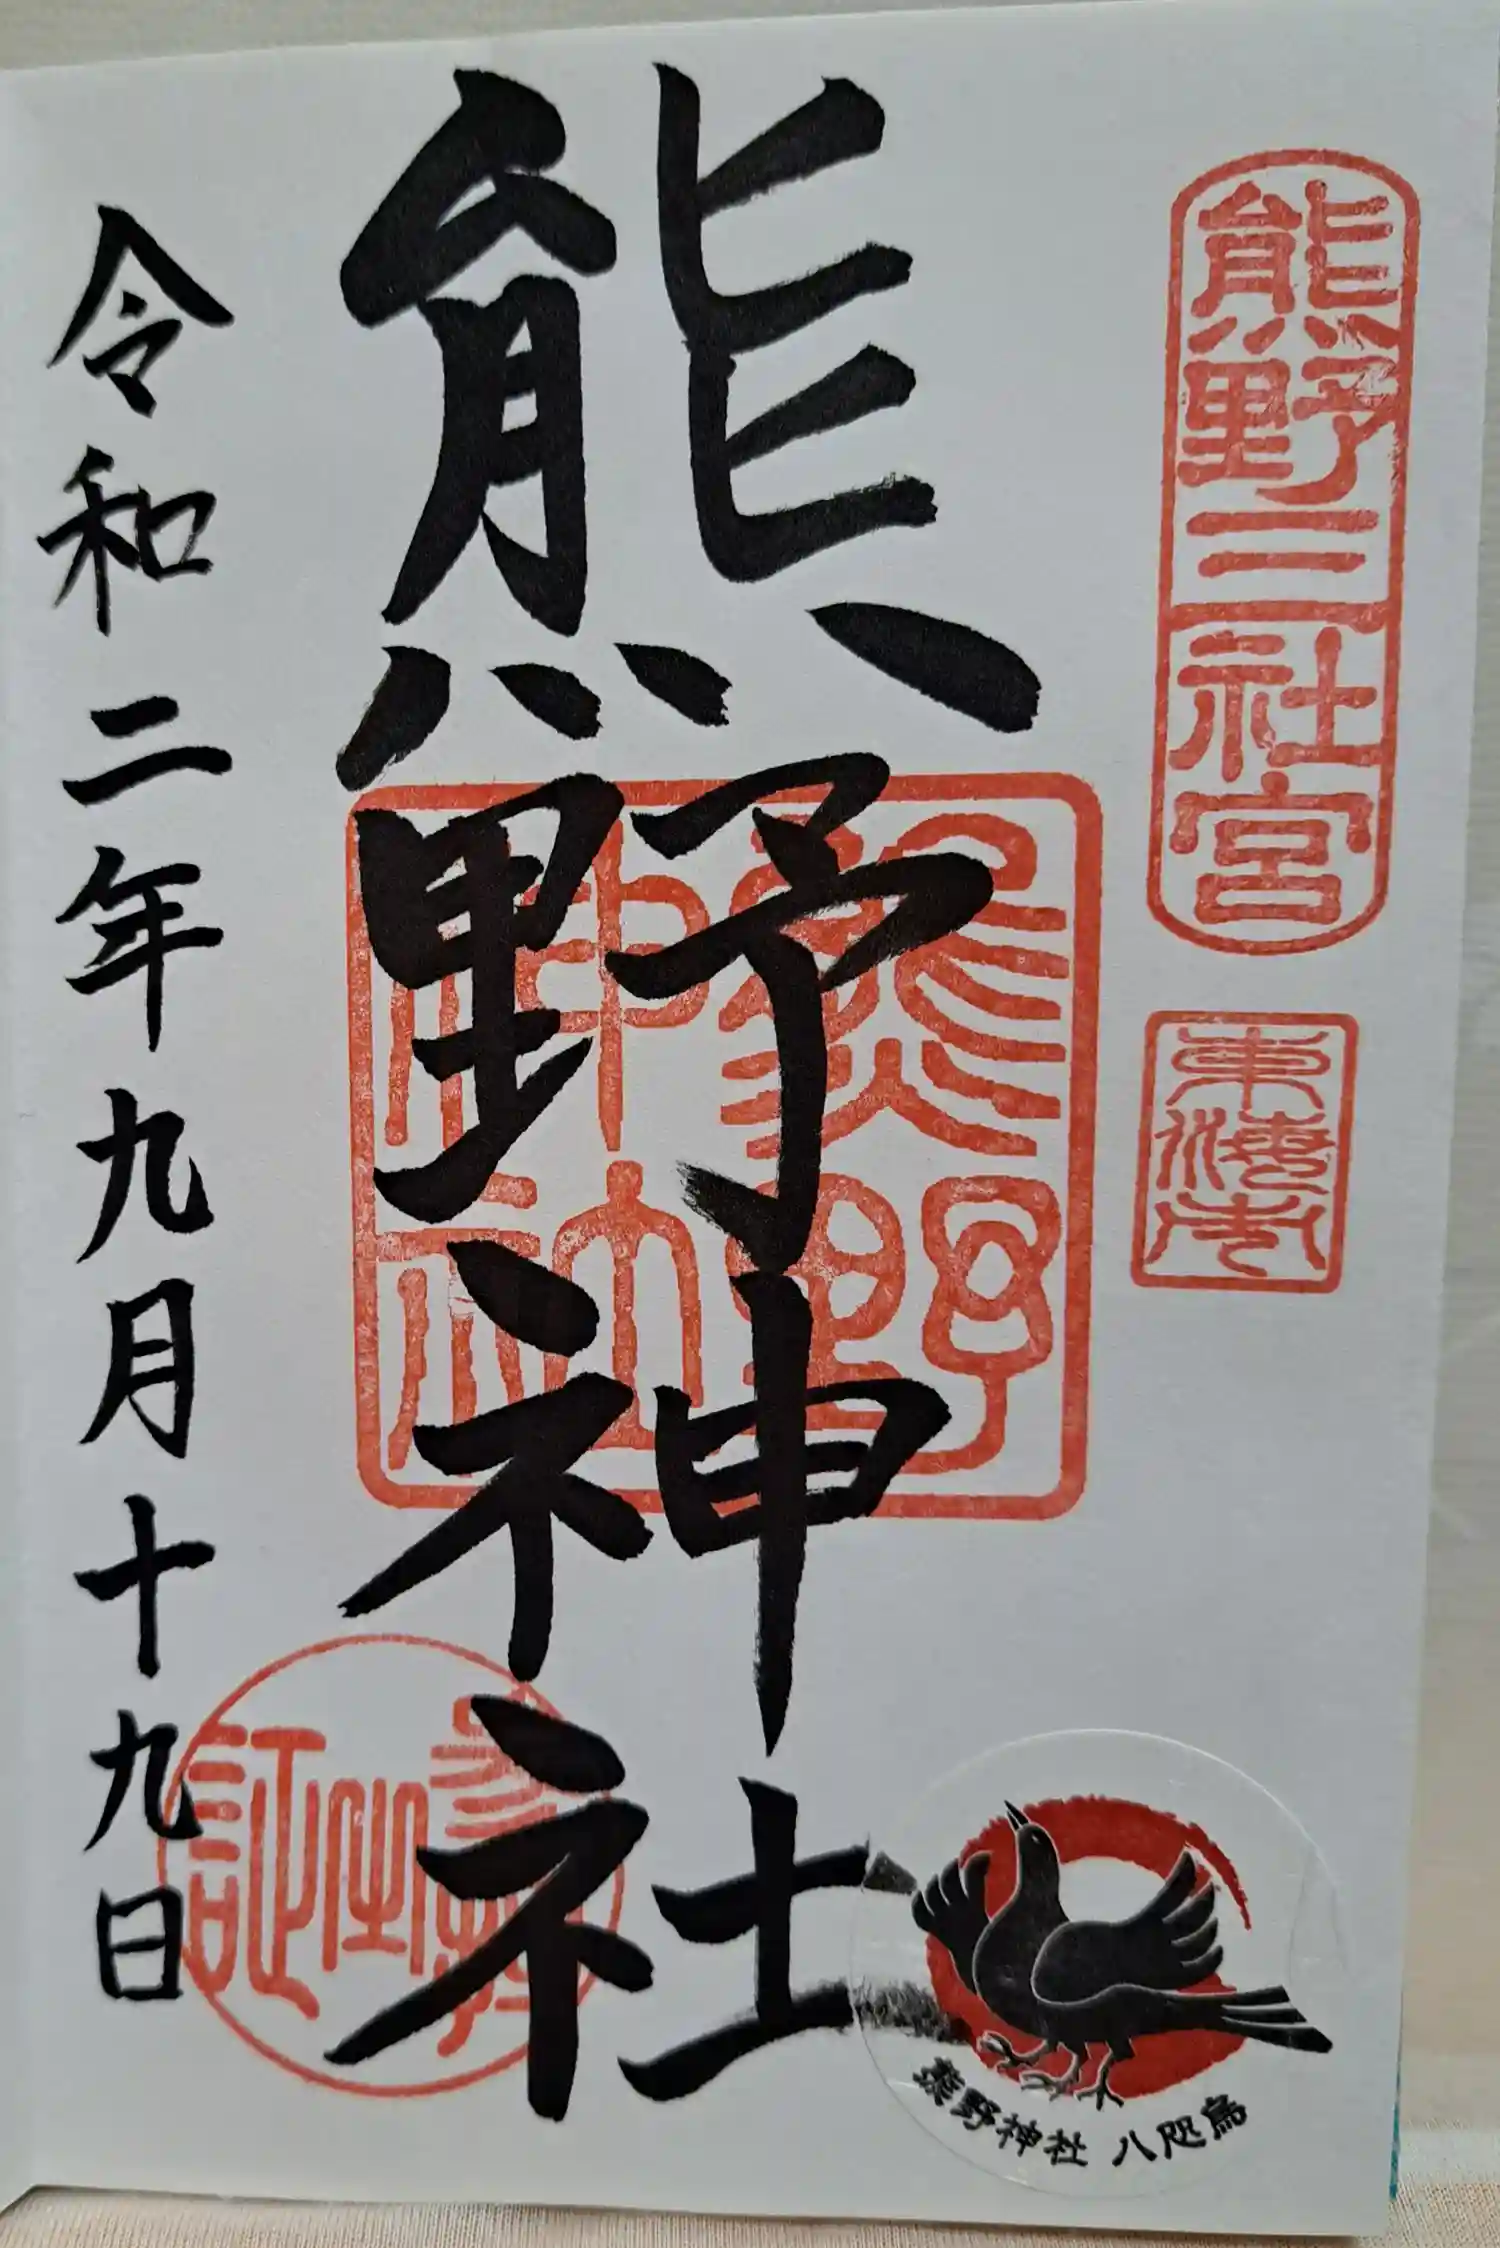 熊野三社宮
東海市
熊野神社
熊野神社
参拝之証
令和二年九月十九日
熊野神社 八咫烏